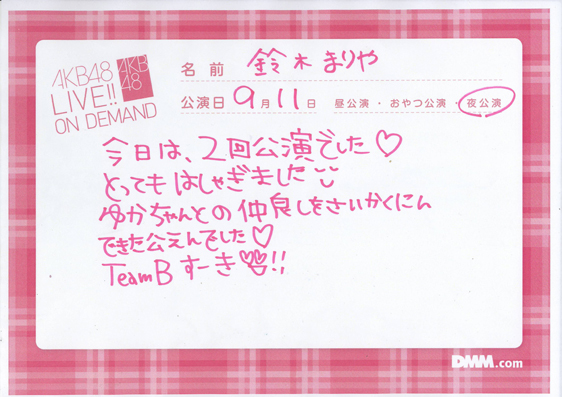 AKB48
LIVE!!
ON DEMAND
AKB
48
名前 鈴木まりや
公演日 9月11日 昼公演・おやつ公演・夜公演
今日は、2回公演でした♡
とってもはしゃぎました
ゆかちゃんとの仲良しをさいかくにん
できた公えんでした♡
TeamBすーき!!
DMM.com